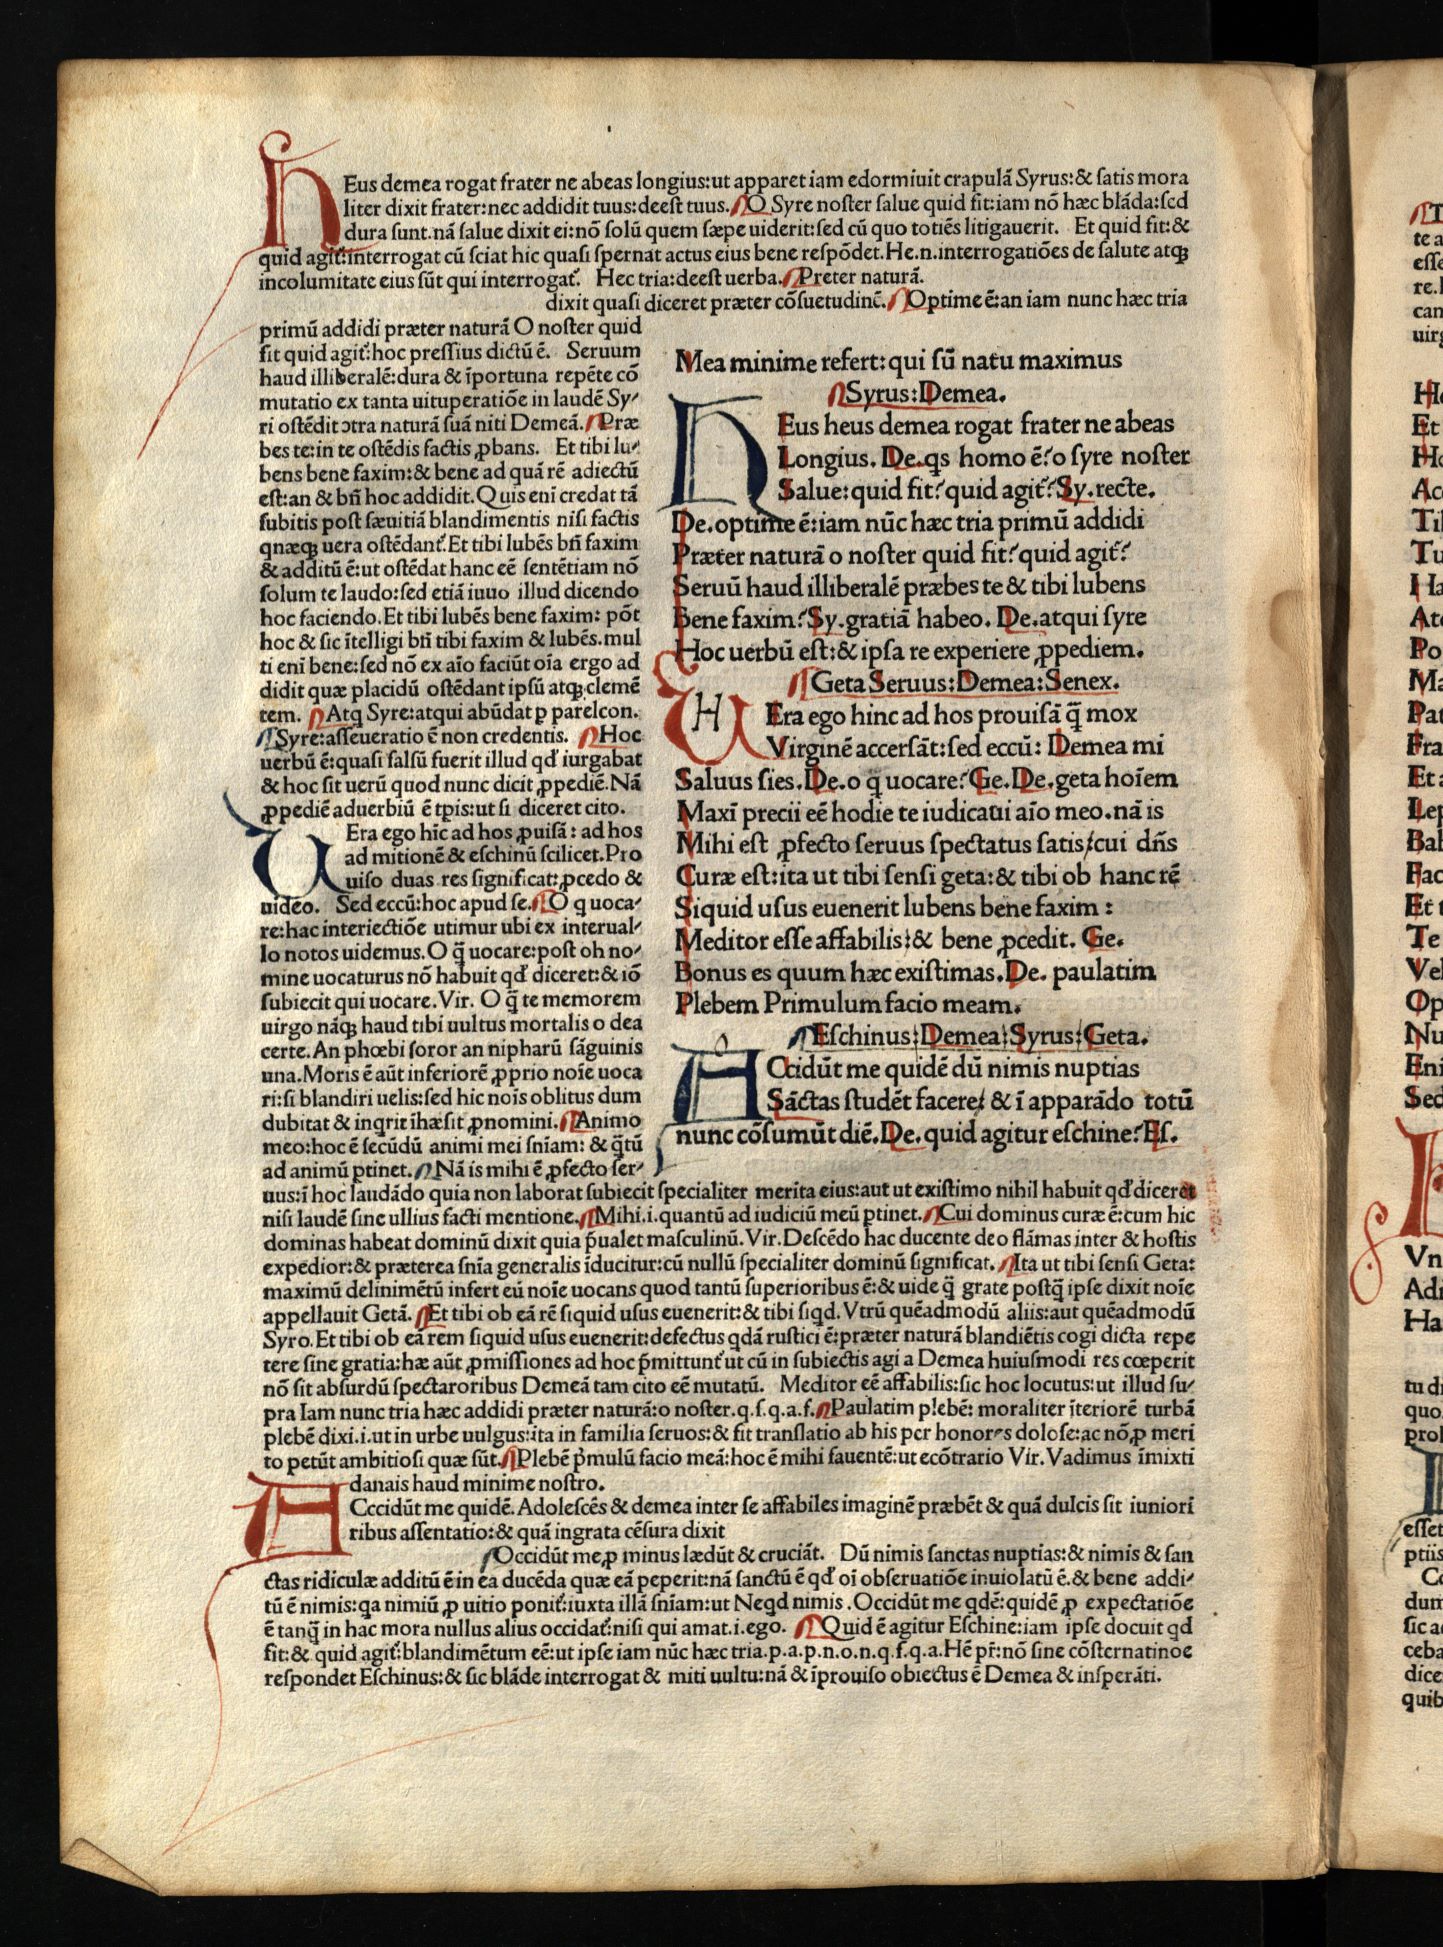 HEus demea rogat frater ne abeas longius:ut apparet iam edormiuit crapulā Syrus:& satis mora
liter dixit frater:nec addidit tuus:deest tuus. O Syre noster salue quid fit:iam nō hæc blāda:sed
dura sunt.nā salue dixit ei:nō solū quem sæpe uiderit:sed cū quo totiēs litigauerit. Et quid fit:&
quid agit̄:interrogat cū sciat hic quasi spernat actus eius bene respōdet.He.n.interrogatiōes de salute atqꝫ
incolumitate eius sūt qui interrogat̄. Hec tria:deest uerba. Preter naturā.
dixit quasi diceret præter cōsuetudinē. Optime ē:an iam nunc hæc tria
primū addidi præter naturā O noster quid
fit quid agit̄:hoc pressius dictū ē. Seruum
haud illiberalē:dura & īportuna repēte cō
mutatio ex tanta uituperatiōe in laudē Sy/
ri ostēdit ↄtra naturā suā niti Demeā. Præ
bes te:in te ostēdis factis ꝓbans. Et tibi lu/
bens bene faxim:& bene ad quā rē adiectū
est:an & bn̄ hoc addidit.Quis enī credat tā
subitis post sæuitiā blandimentis nisi factis
qnæqꝫ uera ostēdant̄.Et tibi lubēs bn̄ faxim
& additū ē:ut ostēdat hanc eē sentētiam nō
solum te laudo:sed etiā iuuo illud dicendo
hoc faciendo.Et tibi lubēs bene faxim: pōt
hoc & sic ītelligi bn̄ tibi faxim & lubēs.mul
ti enī bene:sed nō ex aīo faciūt oīa ergo ad
didit quæ placidū ostēdant ipsū atqꝫ clemē
tem. Atq Syre:atqui abūdat ꝑ parelcon.
Syre:asseueratio ē non credentis. Hoc
uerbū ē:quasi falsū fuerit illud qd' iurgabat
& hoc sit uerū quod nunc dicit ꝓpediē.Nā
ꝓpediē aduerbiū ē tpis:ut si diceret cito.
UEra ego hīc ad hos ꝓuisā: ad hos
ad mitionē & eschinū scilicet.Pro
uiso duas res significat:ꝓcedo &
uideo. Sed eccū:hoc apud se. O q uoca/
re:hac interiectiōe utimur ubi ex interual/
lo notos uidemus.O q̄ uocare:post oh no/
mine uocaturus nō habuit qd' diceret:& iō
subiecit qui uocare.Vir. O q̄ te memorem
uirgo nāqꝫ haud tibi uultus mortalis o dea
certe.An phœbi soror an nipharū sāguinis
una.Moris ē aūt inferiorē ꝓprio noīe uoca
ri:si blandiri uelis:sed hic noīs oblitus dum
dubitat & inqrit īhæsit ꝓnomini. Animo
meo:hoc ē secūdū animi mei snīam: & q̄tū
ad animū ꝑtinet. Nā is mihi ē ꝓfecto ser/
uus:ī hoc laudādo quia non laborat subiecit specialiter merita eius:aut ut existimo nihil habuit qd' diceret
nisi laudē sine ullius facti mentione. Mihi.i.quantū ad iudiciū meū ꝑtinet. Cui dominus curæ ē:cum hic
dominas habeat dominū dixit quia p̄ualet masculinū.Vir.Descēdo hac ducente deo flāmas inter & hostis
expedior:& præterea snīa generalis īducitur:cū nullū specialiter dominū significat. Ita ut tibi sensi Geta:
maximū delinimētū infert eū noīe uocans quod tantū superioribus ē:& uide q̄ grate postq̄ ipse dixit noīe
appellauit Getā. Et tibi ob eā rē siquid usus euenerit:& tibi siqd.Vtrū quēadmodū aliis:aut quēadmodū
Syro.Et tibi ob eā rem siquid usus euenerit:defectus qdā rustici ē:præter naturā blandiētis cogi dicta repe
tere sine gratia:hæ aūt ꝓmissiones ad hoc p̄mittunt̄ ut cū in subiectis agi a Demea huiusmodi res cœperit
nō sit absurdū spectaroribus Demeā tam cito eē mutatū. Meditor eē affabilis:sic hoc locutus:ut illud su/
pra Iam nunc tria hæc addidi præter naturā:o noster.q.f.q.a.f. Paulatim plebē: moraliter īteriorē turbā
plebē dixi.i.ut in urbe uulgus:ita in familia seruos:& fit translatio ab his per honores dolose:ac nō ꝓ meri
to petūt ambitiosi quæ sūt. Plebē p̄mulū facio meā:hoc ē mihi fauentē:ut ecōtrario Vir.Vadimus īmixti
danais haud minime nostro.
ACccidūt me quidē.Adolescēs & demea inter se affabiles imaginē præbēt & quā dulcis sit iuniorī
ribus assentatio:& quā ingrata cēsura dixit
Occidūt me,ꝓ minus lædūt & cruciāt. Dū nimis sanctas nuptias:& nimis & san
ctas ridiculæ additū ē in ea ducēda quæ eā peperit:nā sanctū ē qd' oī obseruatiōe inuiolatū ē.& bene addi/
tū ē nimis:qa nimiū ꝓ uitio ponit̄:iuxta illā snīam:ut Neqd nimis.Occidūt me qdē:quidē ꝓ expectatiōe
ē tanq̄ in hac mora nullus alius occidat̄:nisi qui amat.i.ego. Quid ē agitur Eschine:iam ipse docuit qd
fit:& quid agit̄:blandimētum eē:ut ipse iam nūc hæc tria.p.a.p.n.o.n.q.f.q.a.Hē pr̄:nō sine cōsternatinoe
respondet Eschinus:& sic blāde interrogat & miti uultu:nā & īprouiso obiectus ē Demea & insperāti.
Mea minime refert:qui sū natu maximus
Syrus:Demea.
HEus heus demea rogat frater ne abeas
Longius. De.qs homo ē?o syre noster
Salue:quid fit?quid agit̄?Sy.recte.
De.optime ē:iam nūc hæc tria primū addidi
Præter naturā o noster quid fit?quid agit̄?
Seruū haud illiberalē præbes te & tibi lubens
Bene faxim?Sy.gratiā habeo. De.atqui syre
Hoc uerbū est:& ipsa re experiere ꝓpediem.
Geta Seruus:Demea:Senex.
HEra ego hinc ad hos prouisā q̄ mox
Virginē accersāt:sed eccū: Demea mi
Saluus sies.De.o q̄ uocare?Ge.De.geta hoīem
Maxī precii eē hodie te iudicaui aīo meo.nā is
Mihi est ꝓfecto seruus spectatus satis/cui dn̄s
Curæ est:ita ut tibi sensi geta:& tibi ob hanc rē
Siquid usus euenerit lubens bene faxim:
Meditor esse affabilis:& bene ꝓcedit. Ge.
Bonus es quum hæc existimas.De. paulatim
Plebem Primulum facio meam.
Eschinus:Demea:Syrus:Geta.
OCcidūt me quidē dū nimis nuptias
Sāctas studēt facere/ & ī apparādo totū
nunc cōsumūt diē.De.quid agitur eschine?Es.